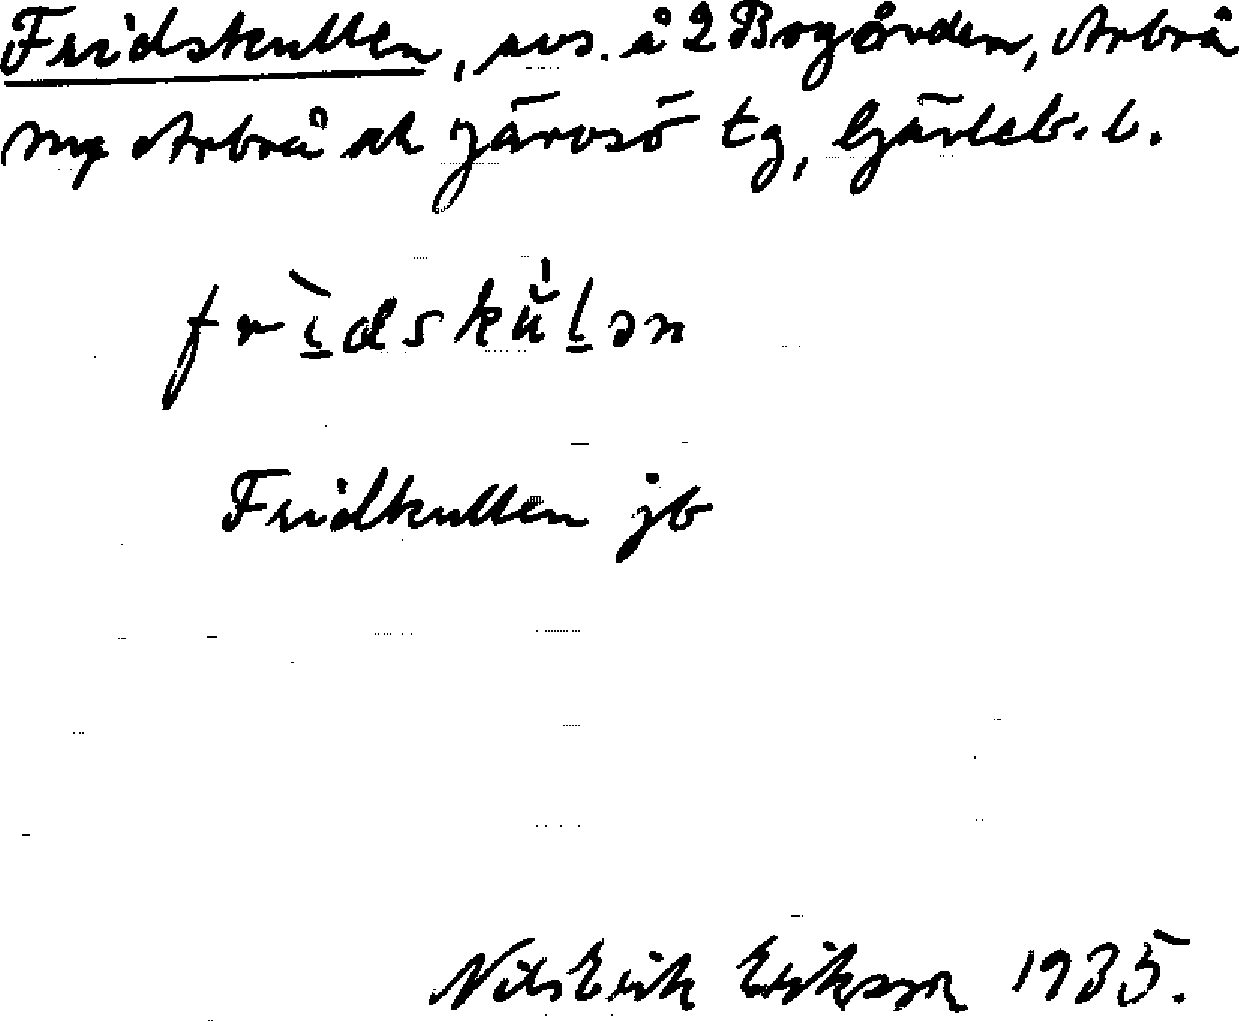 Fridskullen, avs. å 2 Bogården, Arbrå
sn, Arbrå ok Järvsö tg, Gävleb. l.
frìdskŭlən
Fridkullen jb
Nils Erik Erikson 1935.